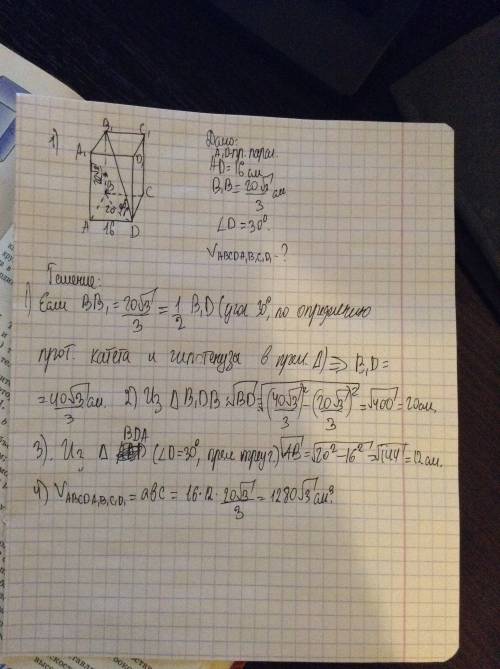 1)
B₁ C₁
A₁ D₁
B C
20
A 16 D
Дано:
A₁D-пр. парал.
AD=16 см
B₁B=20√3/3 см
∠D=30°.
V_ABCDA₁B₁C₁D₁-?
Решение:
1) Если BB₁=20√3/3=1/2 B₁D (угол 30°, по определению
прот. катета и гипотенузы в прям. Δ) ⇒ B₁D=
=40√3/3 см. 2) Из ΔB₁DB √BD=√(40√3/3)²-(20√3/3)²=√400=20см.
3). Из Δ BDA (∠D=30°, прям треуг) √AB=√20²-16²=√144=12 см.
4) V_ABCDA₁B₁C₁D₁=abc=16·12·20√3/3=1280√3 см³.